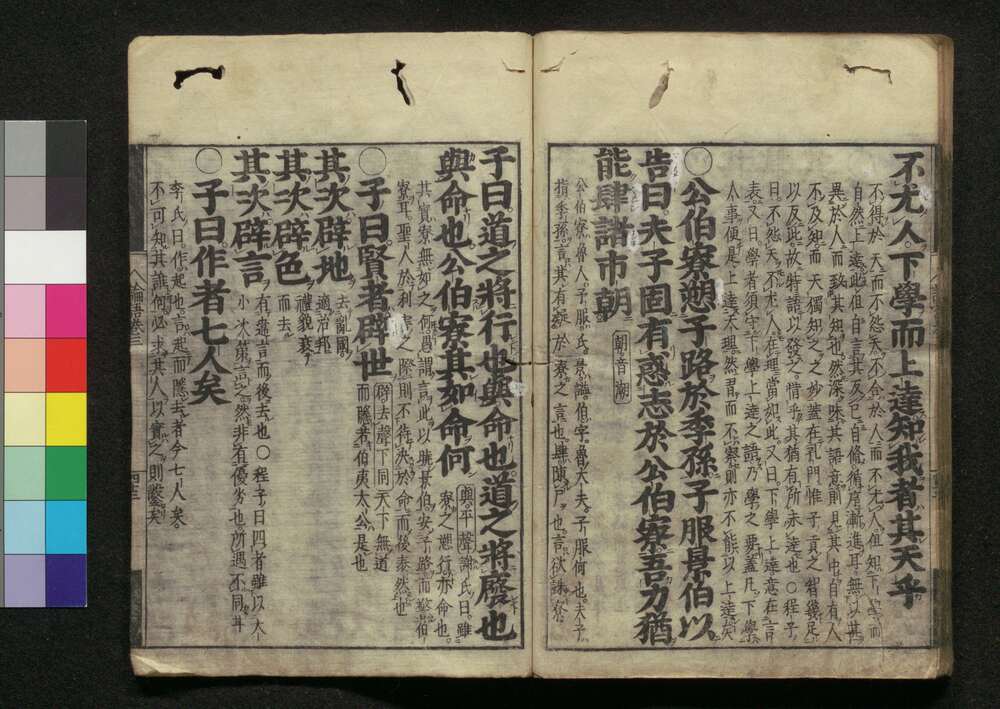 不尤人下學而上達知我者其天乎
不得於天而不怨天不合於人而不尤人但知下學而
自然上達此但自言其反己自修循序漸進耳無以甚
異於人而致其知也然深味其語意則見其中自有人
不及知而天獨知之之妙蓋在孔門惟子貢之智幾足
以及此故特語以發之惜乎其猶有所未達也○程子
曰不怨天不尤人在理當如此又曰下學上達意在言
表又曰學者須守下學上達之語乃學之要蓋凡下學
人事便是上達天理然習而不察則亦不能以上達矣
○公伯寮愬子路於季孫子服景伯以
告曰夫子固有惑志於公伯寮吾力猶
能肆諸市朝 朝音潮
公伯寮魯人子服氏景謚伯字魯大夫子服何也夫子
指季孫言其有疑於寮之言也肆陳尸也言欲誅寮
子曰道之將行也與命也道之將廢也
與命也公伯寮其如命何 與平聲謝氏曰雖
寮之愬行亦命也
其實寮無如之何愚謂言此以曉景伯安子路而警伯
寮耳聖人於利害之際則不待決於命而後泰然也
○子曰賢者辟世 辟去聲下同天下無道
而隱若伯夷太公是也
其次辟地 去亂國
適治邦
其次辟色 禮貌衰
而去
其次辟言 有違言而後去也○程子曰四者雖以大
小次第言之然非有優劣也所遇不同耳
○子曰作者七人矣
李氏曰作起也言起而隱去者今七人矣
不可知其誰何必求其人以實之則鑿矣